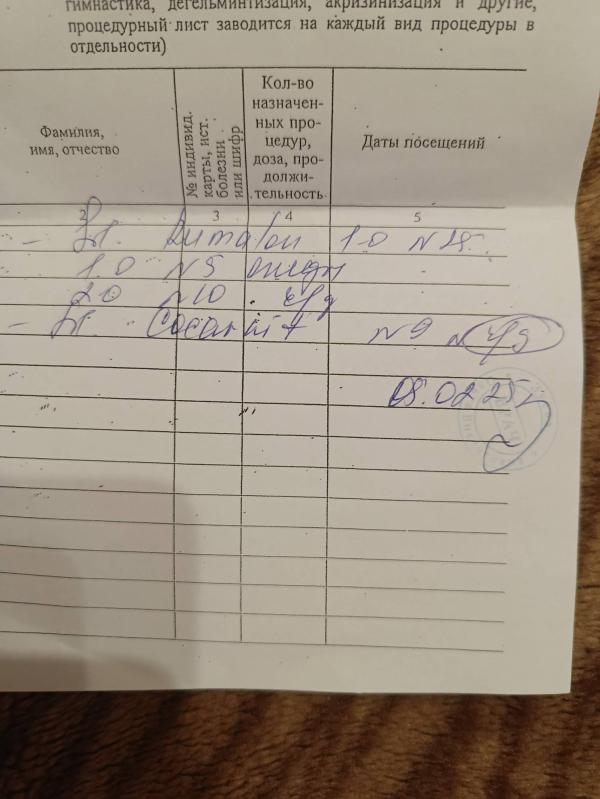 гимнастика, дегельминтизация, акризинизация и другие,
процедурный лист заводится на каждый вид процедуры в
отдельности)
Фамилия,
имя, отчество
№ индивид.
карты, ист.
болезни
или шифр
Кол-во
назначен-
ных про-
цедур,
доза, про-
должи-
тельность
Даты посещений
2 3 4 5
- Rumalon 1.0 N25
1.0 N5 ежедн
2.0 N10 ч/д
- Cocarnit N9 ч/д
08.02.25г